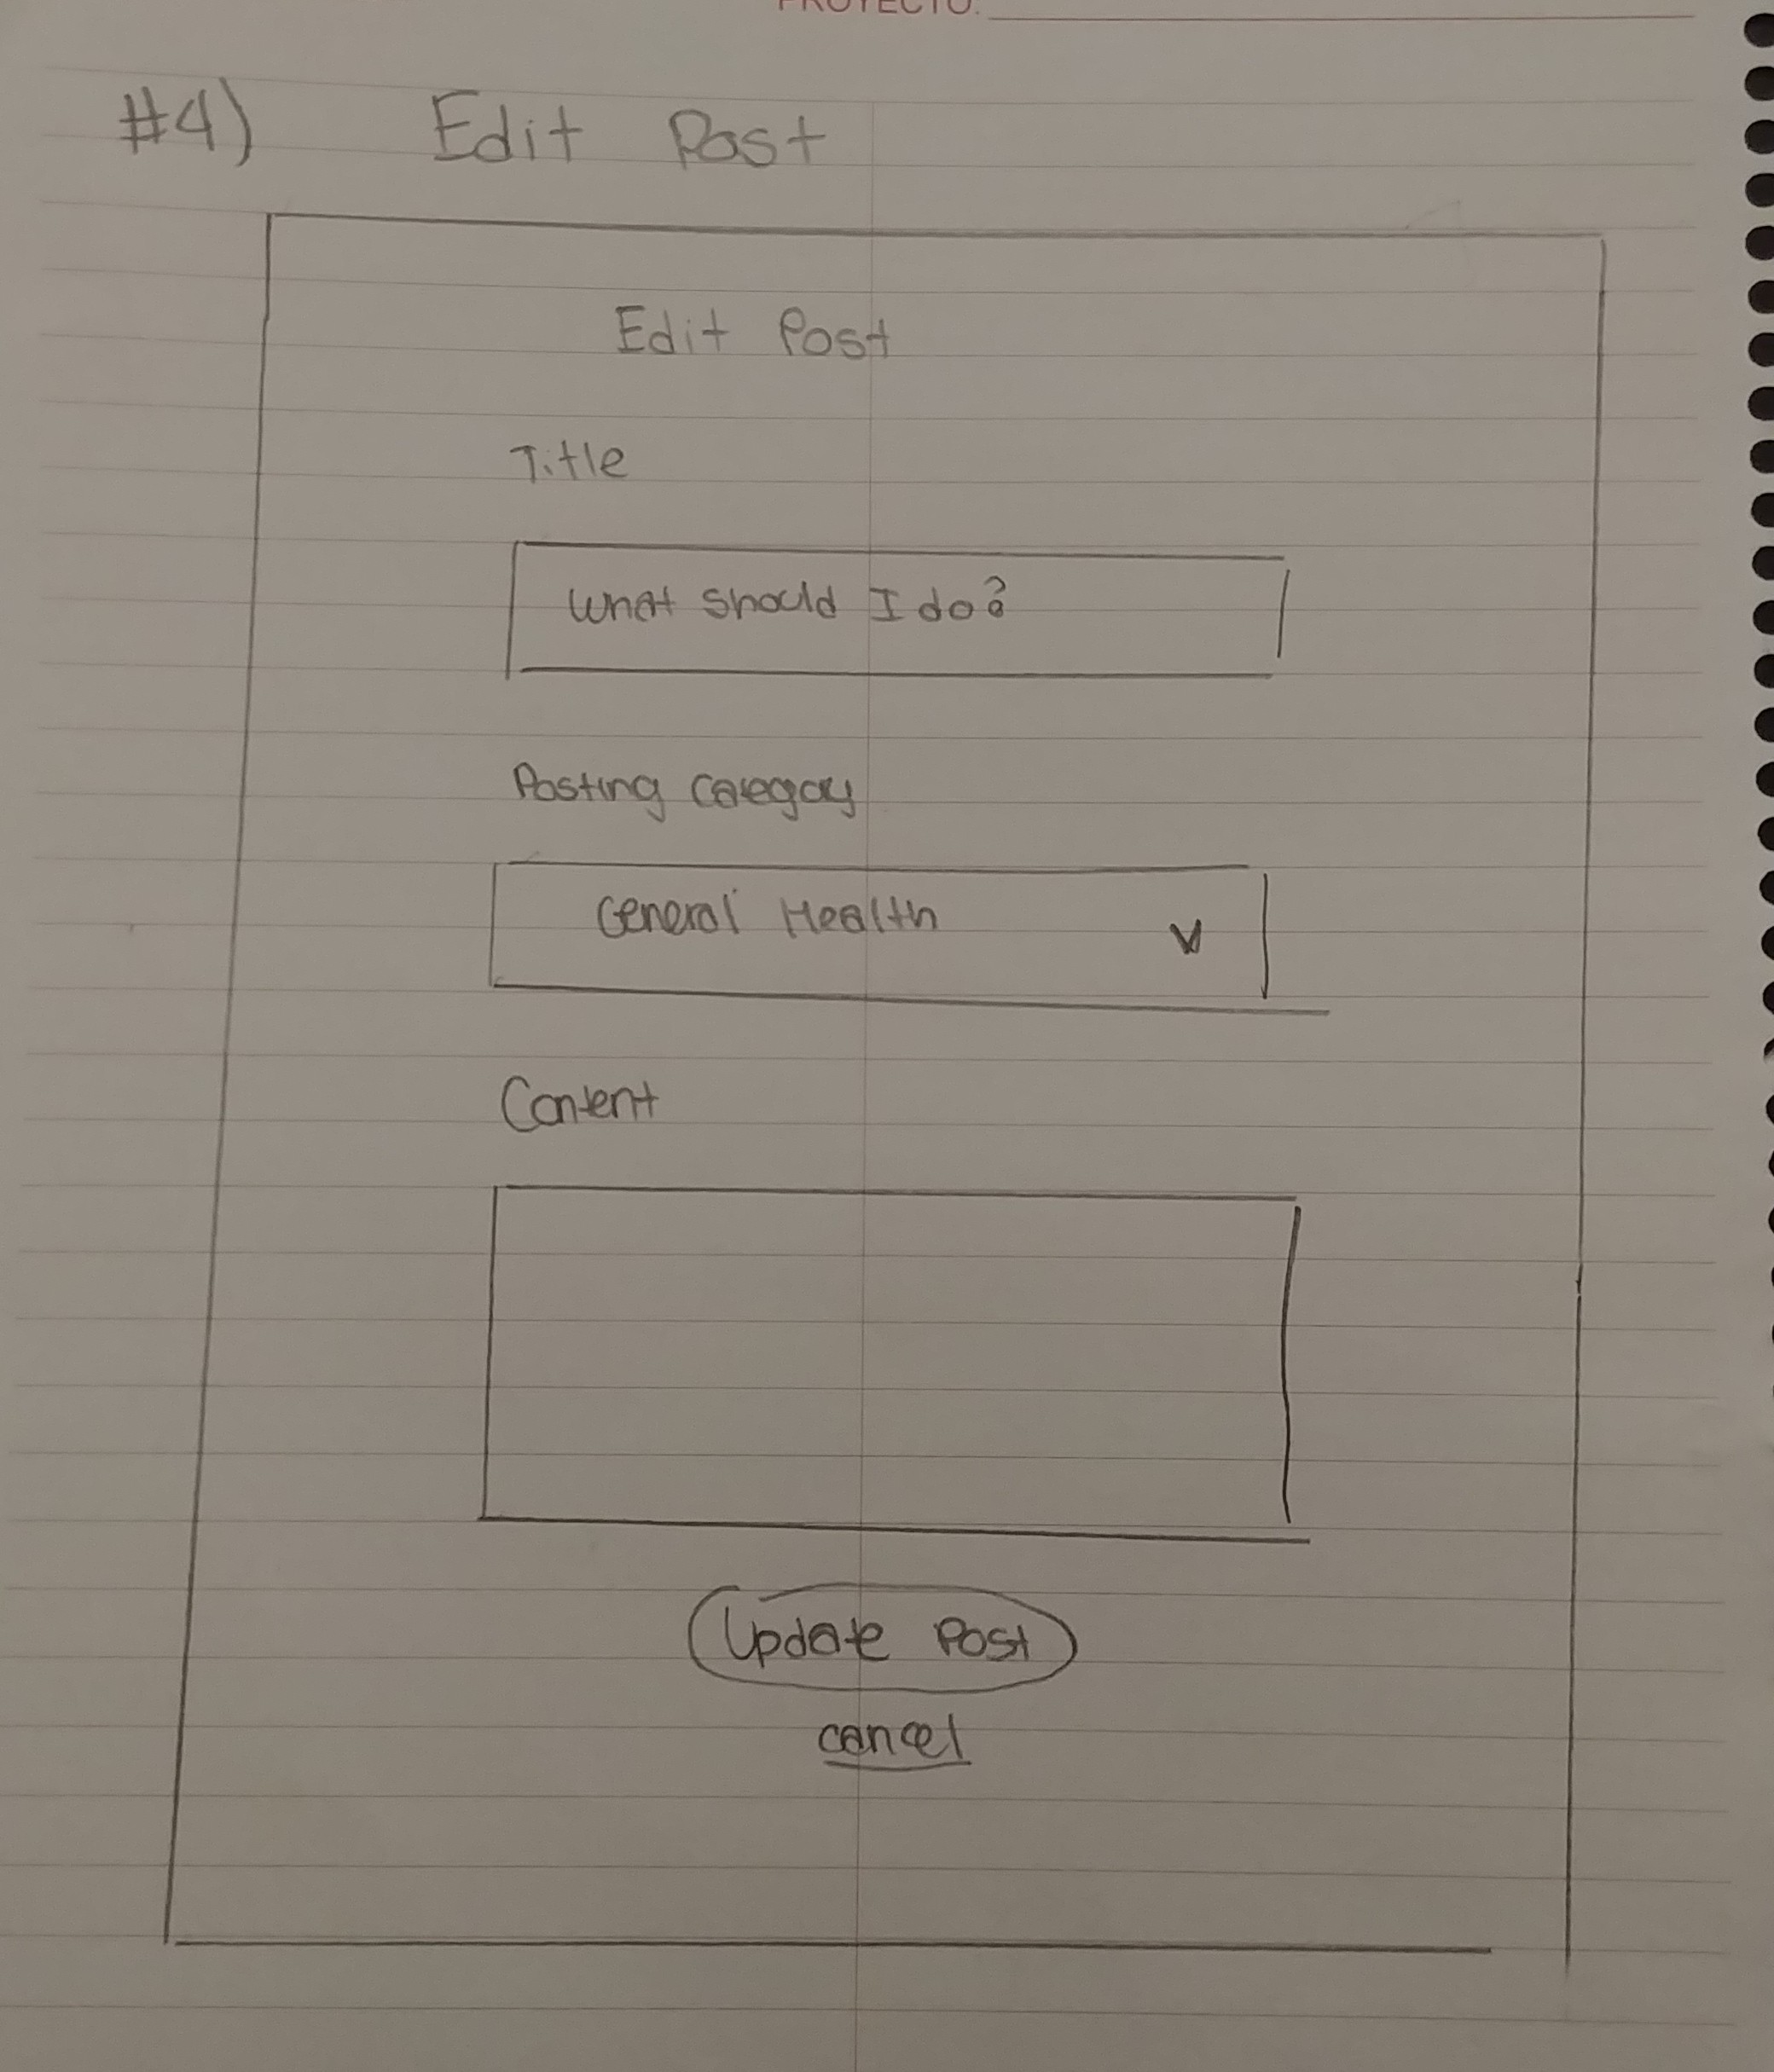 PROYECTO:
#4) Edit Post
Edit Post
Title
What should I do?
Posting Category
General Health
Content
Update Post
cancel